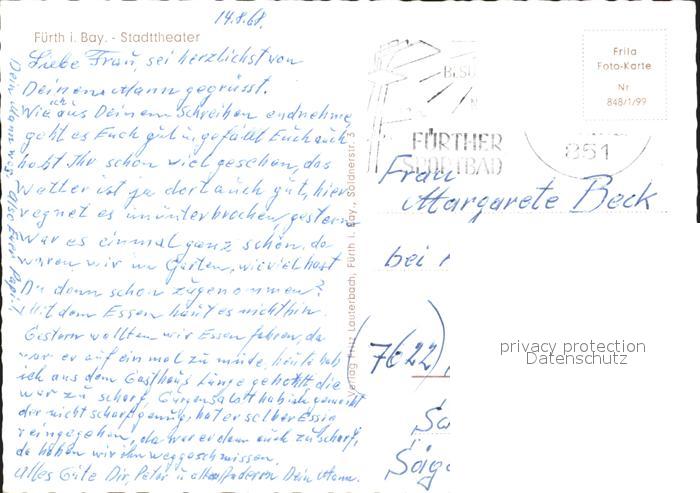 14.8.68.
Fürth i. Bay. - Stadttheater
Liebe Frau, sei herzlichst von
Deinem Mann gegrüsst.
Wie ich aus Deinem Schreiben endnehme,
geht es Euch gut u. gefällt Euch auch
habt Ihr schon viel gesehen, das
Wetter ist ja dort auch gut, hier
regnet es ununterbrochen, gestern
war es einmal ganz schön, da
waren wir im Garten, wieviel hast
Du denn schon zugenommen?
Mit dem Essen haut es nicht hin.
Gestern wollten wir Essen fahren, da
war er auf einmal zu müde, heute hab
ich aus dem Gasthaus Lunge geholt, die
war zu scharf, Gurkensalat hab ich gemacht
der nicht scharf genug, hat er selber Essig
reingegeben, da war er dann auch zu scharf,
da haben wir ihn weggeschmissen.
Alles Gute Dir, Peter u. allen anderen Dein Mann.
Verlag Fritz Lauterbach, Fürth i. Bay., Soldnerstr. 3
BESU
FÜRTHER
SPORTBAD
851
Frila
Foto-Karte
Nr
848/1/99
Frau
Margarete Beck
bei
(7622)
privacy protection
Datenschutz
Sa
Säg